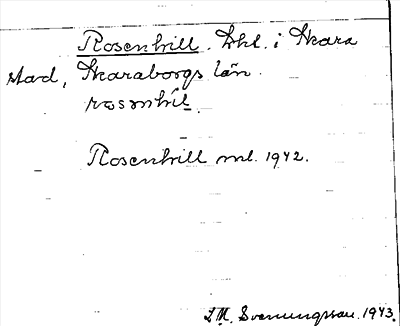 Rosenhill. Lhl. i Skara
stad, Skaraborgs län.
rosənhil.
Rosenhill ml. 1942.
S.M. Svenungsson. 1943.